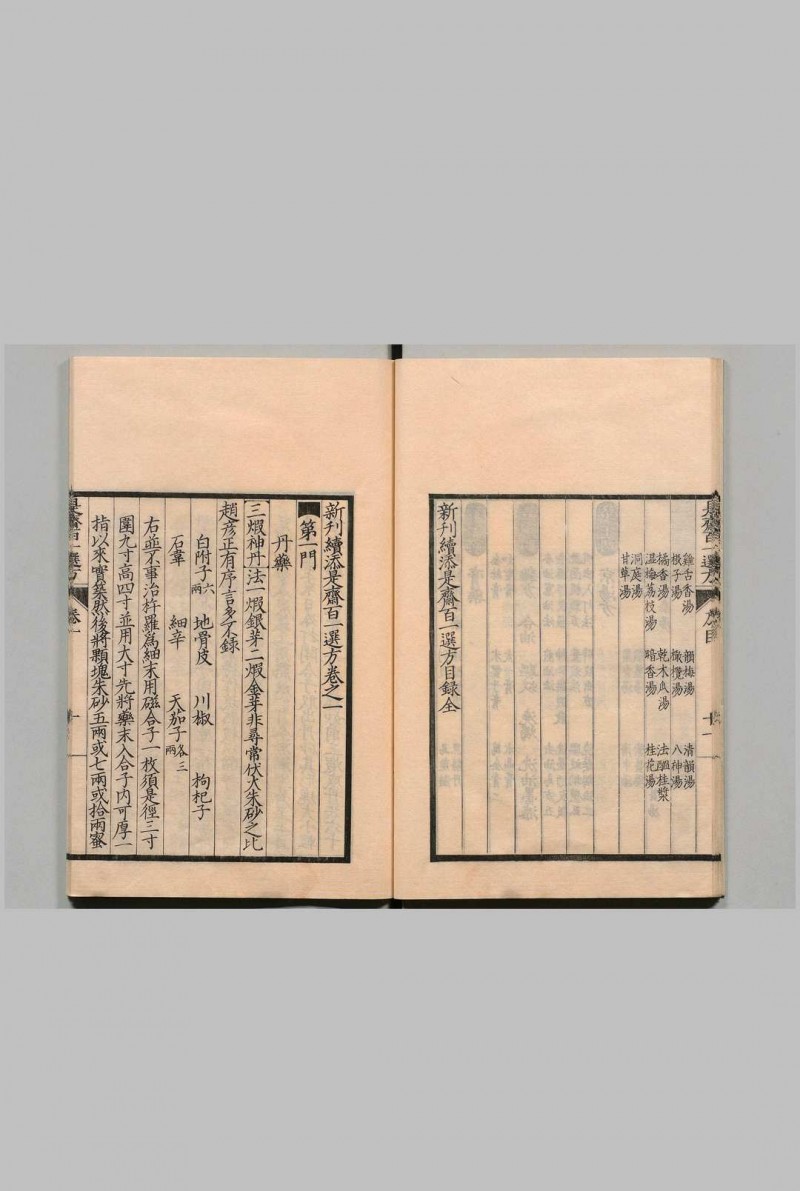 雞舌香湯　韻梅湯　清韻湯
梔子湯　橄欖湯　八神湯
橘香湯　乾木瓜湯　法醞桂漿
温梅荔枝湯　暗香湯　桂花湯
洞庭湯
甘草湯
新刊續添是齋百一選方目録全
新刊續添是齋百一選方卷之一
第一門
丹藥
三煆神丹法一煆銀芽二煆金芽非尋常伏火朱砂之比
趙彦正有序言多不録
白附子六兩　地骨皮　川椒　枸杞子
石韋　細辛　天茄子各三兩
右並不事治杵羅爲細末用磁合子一枚須是徑三寸
圍九寸高四寸並用大寸先將藥末入合子内可厚一
指以來實築然後將顆塊朱砂五兩或七兩或拾兩蜜
是齋百一選方　卷一